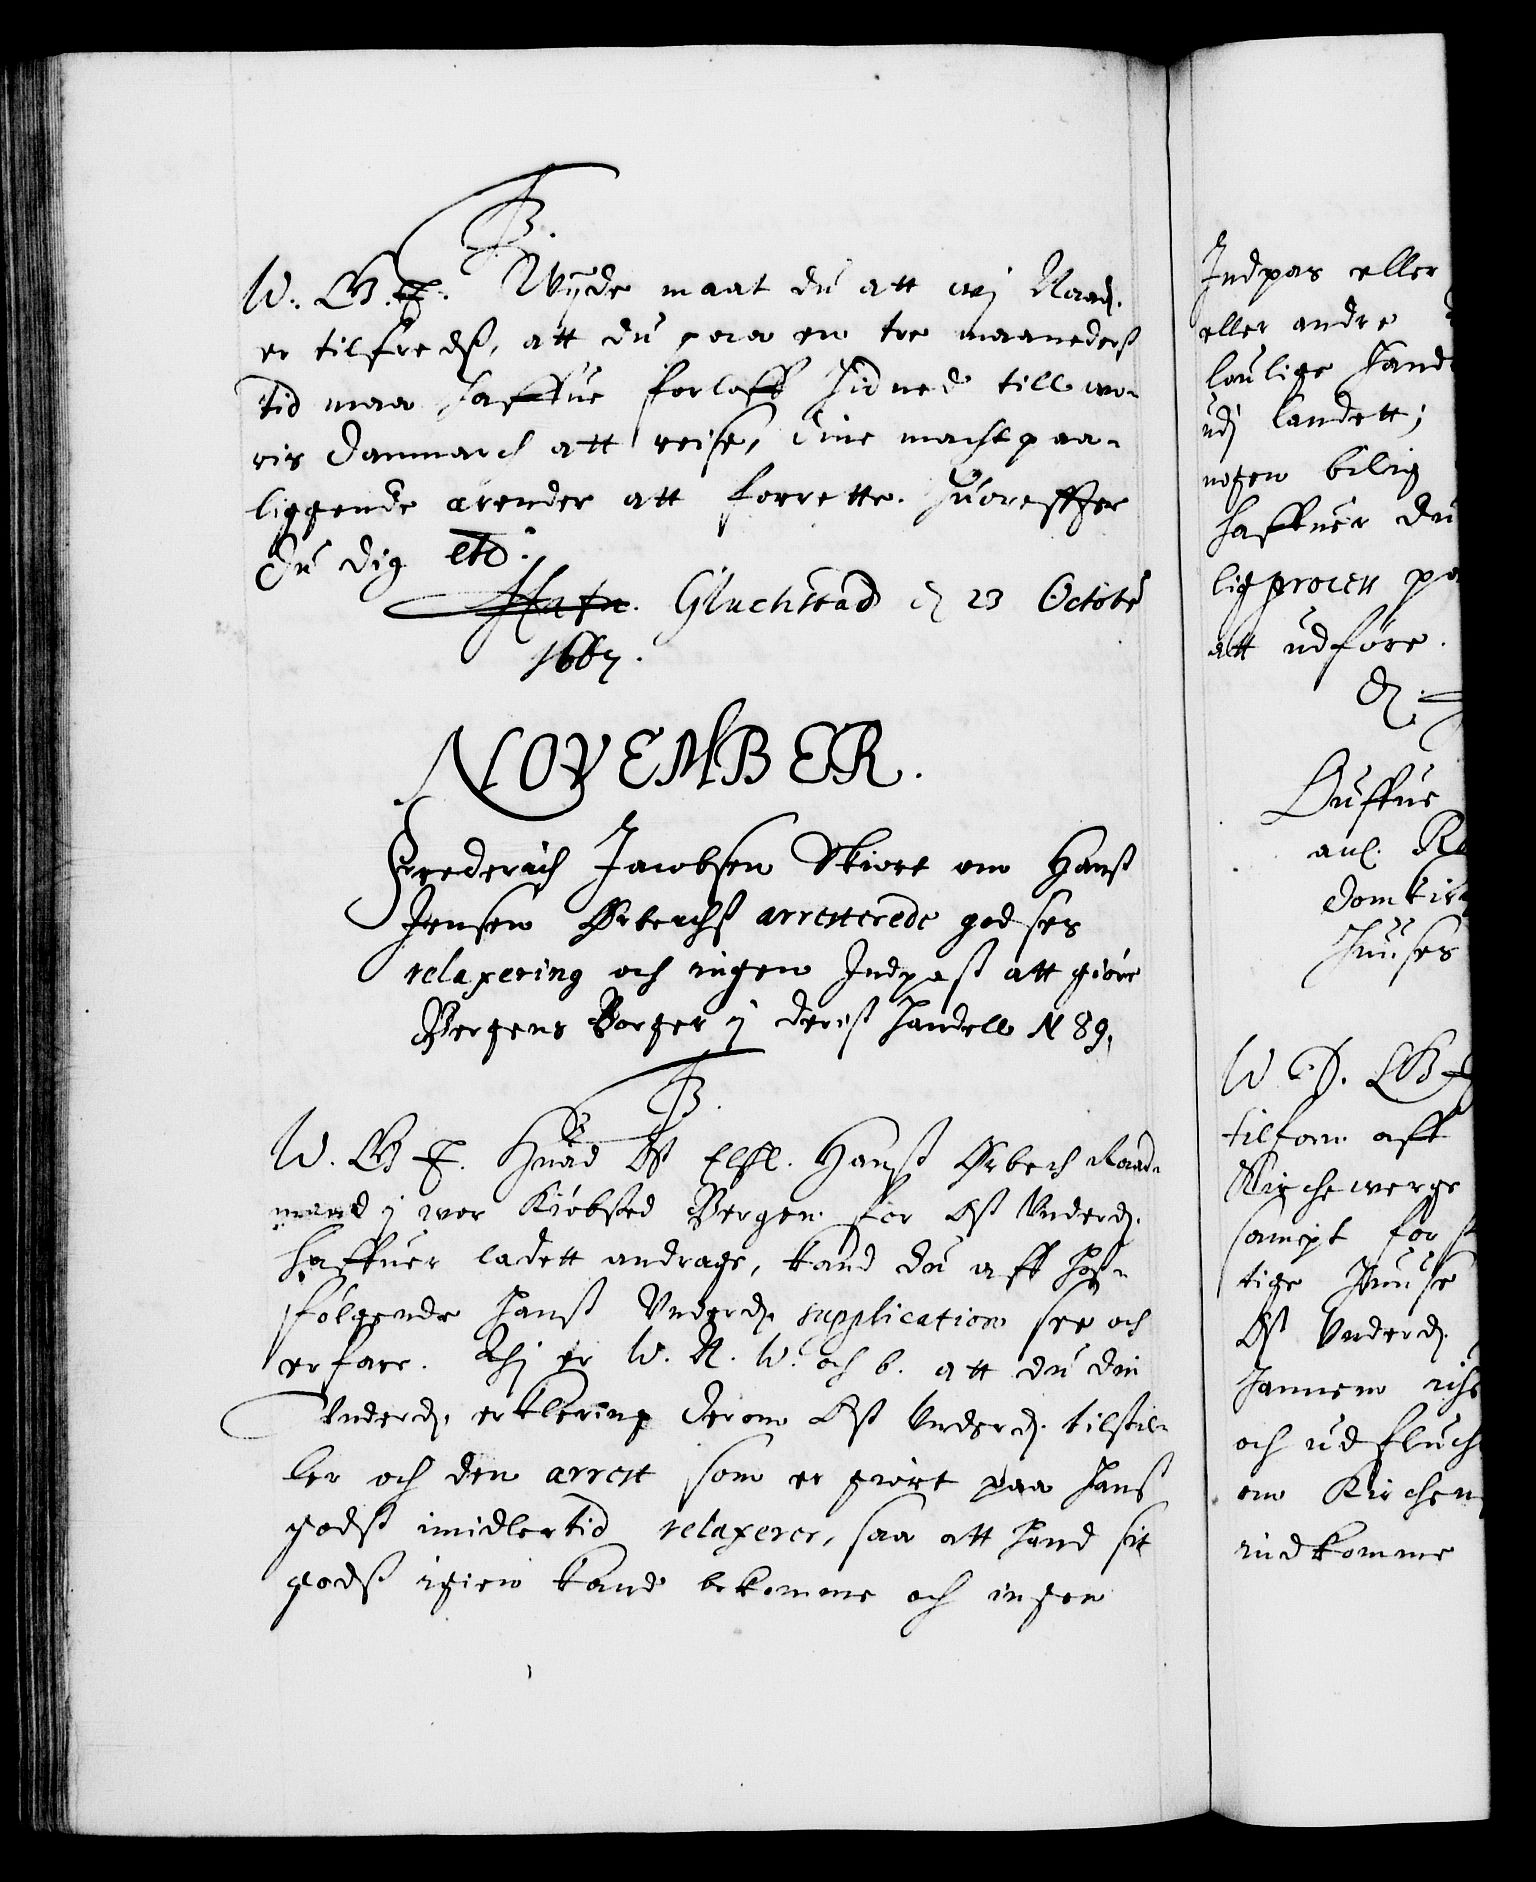 B.
W. G. F. Wÿde maat du att wj Naad.
er tilfredß, att du paa en tre maanederß
tid maa haffue forloff hid ned till wo-
ris Danmarch att reise, dine machtpaa-
liggende ærender att forrette. Huoreffter
du dig etc.
Hafn. Gluchstad d. 23 Octobr
1667.
NOVEMBER.
Frederich Jacobsen Skiort om Hanß
Jensen Ørbechß arresterede godses
relaxering och ingen Indpaß att giöre
Bergens Borger j dereß Handell N 89.
B.
W. G. F. Huad Oß Elsl. Hanß Ørbech Raad-
mand j wor Kiöbsted Bergen for Oß Underd.
haffuer ladett andrage, kand du aff hoß-
følgende hanß Underd. supplication see och
erfare. Thj er W. N. W. och b. att du din
Underd. erklering derom Oß Underd. tilstil-
ler och den arrest som er giort paa hanß
godß imidlertid relaxerer, saa att hand sit
godß igien kand bekomme och ingen
Indpas eller
eller andre
laulige Hand
udj landett;
nogen billig
haffuer du
lig proces pa
att udføre.
D.
Ouffue
anl.
domkir
Huuses
W. D. G. F.
tilforn aff
Kirchewerge
sampt for
tige Huuse
Oß Underd.
hannem
och udfluch
om Kirchen
indkomme